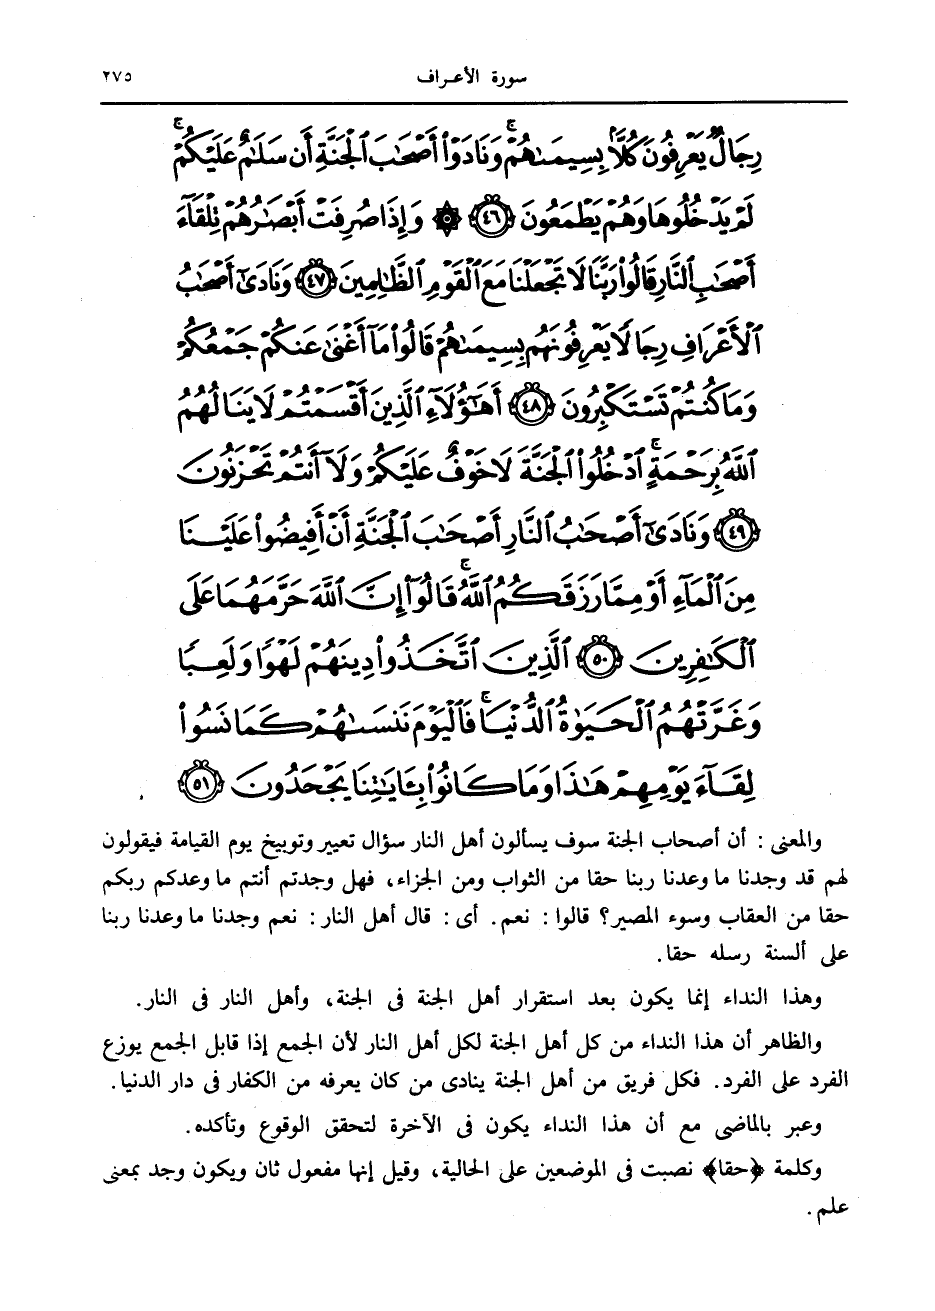 سورة الأعراف ٢٧٥
رِجَالٌ يَعْرِفُونَ كُلًّا بِسِيمَىٰهُمْ ۚ وَنَادَوْا۟ أَصْحَٰبَ ٱلْجَنَّةِ أَن سَلَٰمٌ عَلَيْكُمْ ۚ
لَمْ يَدْخُلُوهَا وَهُمْ يَطْمَعُونَ ﴿٤٦﴾ ۞ وَإِذَا صُرِفَتْ أَبْصَٰرُهُمْ تِلْقَآءَ
أَصْحَٰبِ ٱلنَّارِ قَالُوا۟ رَبَّنَا لَا تَجْعَلْنَا مَعَ ٱلْقَوْمِ ٱلظَّٰلِمِينَ ﴿٤٧﴾ وَنَادَىٰٓ أَصْحَٰبُ
ٱلْأَعْرَافِ رِجَالًا يَعْرِفُونَهُم بِسِيمَىٰهُمْ قَالُوا۟ مَآ أَغْنَىٰ عَنكُمْ جَمْعُكُمْ
وَمَا كُنتُمْ تَسْتَكْبِرُونَ ﴿٤٨﴾ أَهَٰٓؤُلَآءِ ٱلَّذِينَ أَقْسَمْتُمْ لَا يَنَالُهُمُ
ٱللَّهُ بِرَحْمَةٍ ۚ ٱدْخُلُوا۟ ٱلْجَنَّةَ لَا خَوْفٌ عَلَيْكُمْ وَلَآ أَنتُمْ تَحْزَنُونَ
﴿٤٩﴾ وَنَادَىٰٓ أَصْحَٰبُ ٱلنَّارِ أَصْحَٰبَ ٱلْجَنَّةِ أَنْ أَفِيضُوا۟ عَلَيْنَا
مِنَ ٱلْمَآءِ أَوْ مِمَّا رَزَقَكُمُ ٱللَّهُ ۚ قَالُوٓا۟ إِنَّ ٱللَّهَ حَرَّمَهُمَا عَلَى
ٱلْكَٰفِرِينَ ﴿٥٠﴾ ٱلَّذِينَ ٱتَّخَذُوا۟ دِينَهُمْ لَهْوًا وَلَعِبًا
وَغَرَّتْهُمُ ٱلْحَيَوٰةُ ٱلدُّنْيَا ۚ فَٱلْيَوْمَ نَنسَىٰهُمْ كَمَا نَسُوا۟
لِقَآءَ يَوْمِهِمْ هَٰذَا وَمَا كَانُوا۟ بِـَٔايَٰتِنَا يَجْحَدُونَ ﴿٥١﴾
والمعنى : أن أصحاب الجنة سوف يسألون أهل النار سؤال تعيير وتوبيخ يوم القيامة فيقولون
لهم قد وجدنا ما وعدنا ربنا حقا من الثواب ومن الجزاء، فهل وجدتم أنتم ما وعدكم ربكم
حقا من العقاب وسوء المصير؟ قالوا : نعم. أى : قال أهل النار : نعم وجدنا ما وعدنا ربنا
على ألسنة رسله حقا.
وهذا النداء إنما يكون بعد استقرار أهل الجنة فى الجنة، وأهل النار فى النار.
والظاهر أن هذا النداء من كل أهل الجنة لكل أهل النار لأن الجمع إذا قابل الجمع يوزع
الفرد على الفرد. فكل فريق من أهل الجنة ينادى من كان يعرفه من الكفار فى دار الدنيا.
وعبر بالماضى مع أن هذا النداء يكون فى الآخرة لتحقق الوقوع وتأكده.
وكلمة ﴿حقا﴾ نصبت فى الموضعين على الحالية، وقيل إنها مفعول ثان ويكون وجد بمعنى
علم.